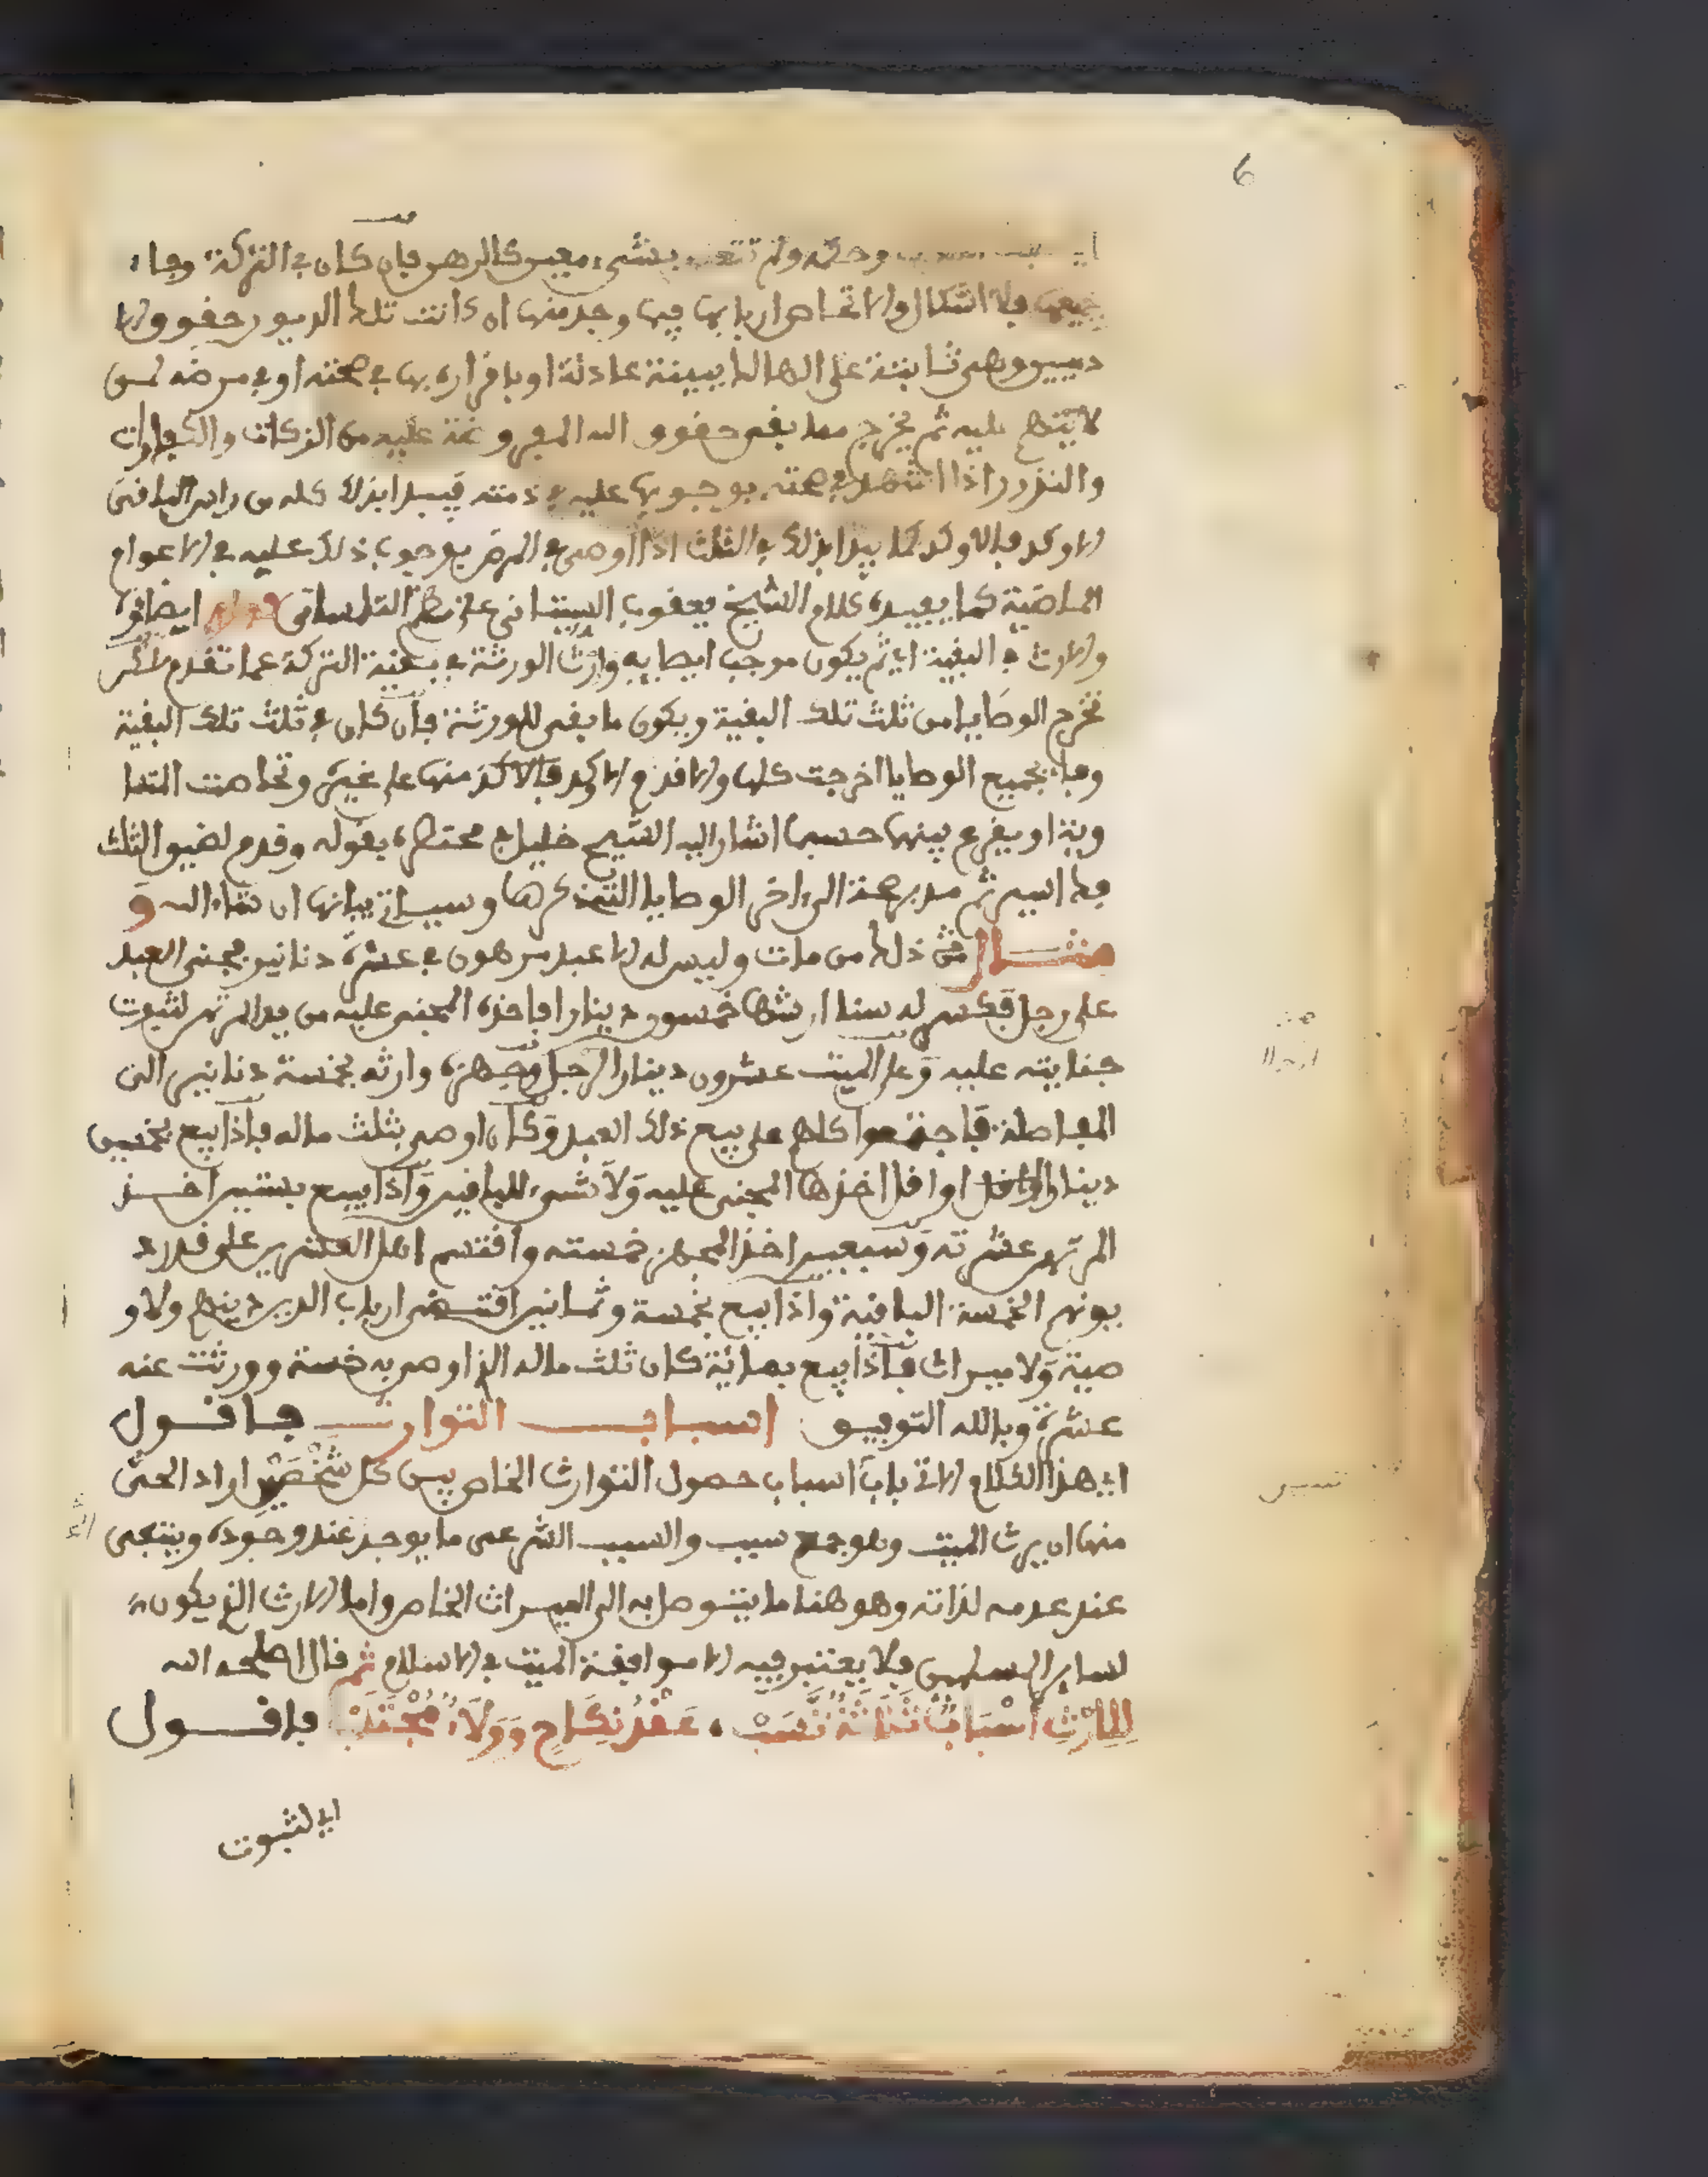 6
وحكمه ولم تتعلق بشيء معين كالرهن فإن كان في التركة وفاء
جميعها فلا اشكال والا تحاص اربابها فيها وجد منها ان كانت تلك الديون حقوق الا
دميين وهي ثابتة على الهالك ببينة عادلة او بإقراره بها في صحته او في مرضه لمن
لا يتهم عليه ثم يخرج مما بقي حقوق الله المفروضة عليه من الزكات والكفارات
والنذور اذا اشهد في صحته بوجوبها عليه في ذمته فيبدا بذلك كله من راس الباقي
الاوكد فالاوكد كما يبدا بذلك في الثلث اذا اوصى في المرض بوجوب ذلك عليه في الاعوام
الماضية كما يفيده كلام الشيخ يعقوب السيتاني على نظم التلمساني ايضاؤه
والارث في البقية اي ثم يكون موجب ايصايه وارث الورثة في بقية التركة عما تقدم لاكن
تخرج الوصايا من ثلث تلك البقية ويكون ما بقي للورثة فإن كان في ثلث تلك البقية
وفاء بجميع الوصايا اخرجت كلها والا قدم الاوكد فالاكد منها على غيره وتحاصت المتسا
وية او يقرع بينها حسبما اشار اليه الشيخ خليل في مختصره بقوله وقدم لضيق الثلث
فك اسير ثم مدبر صحة الى ءاخر الوصايا التي ذكرها وسياتي بيانها ان شاء الله و
مثال ذلك من مات وليس له الا عبد مرهون في عشرة دنانير فجنى العبد
على رجل فكسر له سنا ارشها خمسون دينارا فاخذه المجني عليه من يد المرتهن لثبوت
جنايته عليه وعلى الميت عشرون دينارا لرجل وجهزه وارثه بخمسة دنانير الى
المفاصلة فاجتمعوا كلهم على بيع ذلك العبد وكان اوصى بثلث ماله فإذا بيع بخمسين
دينارا او اقل اخذها المجني عليه ولا شيء للباقين واذا بيع بستين اخذ
المرتهن عشرته وسبعين اخذ المجهز خمسته واقتسم اهل العشرين على قدر د
يونهم الخمسة الباقية واذا بيع بخمسة وثمانين اقتضى ارباب الدين دينهم ولا و
صية ولا ميراث فإذا بيع بمائة كان ثلث ماله الذي اوصى به خمسة وورثت عنه
عشرة وبالله التوفيق اسباب التوارث فاقول
اي هذا الكلام الاتي باب اسباب حصول التوارث الخاص بين كل شخصين اراد الحي
منها ان يرث الميت وهو جمع سبب والسبب الشرعي ما يوجد عند وجوده وينتفي
عند عدمه لذاته وهو هنا ما يتوصل به الى الميراث الخاص واما الارث الذي يكون
لساير المسلمين فلا يعتبر فيه الا موافقة الميت في الاسلام ثم قال اصلحه الله
لِلإرْثِ أَسْبَابٌ ثَلَاثَةٌ نَسَبْ . عَقْدُ نِكَاحٍ وَوَلَاءٌ مُجْتَلَبْ فاقول
اي لثبوت